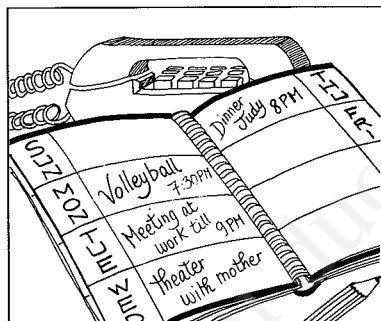 SUN
MON
Volleyball
7:30PM
TUE
Meeting at
work till 9PM
WED
Theater
with mother
THU
Dinner
Judy 8PM
FRI